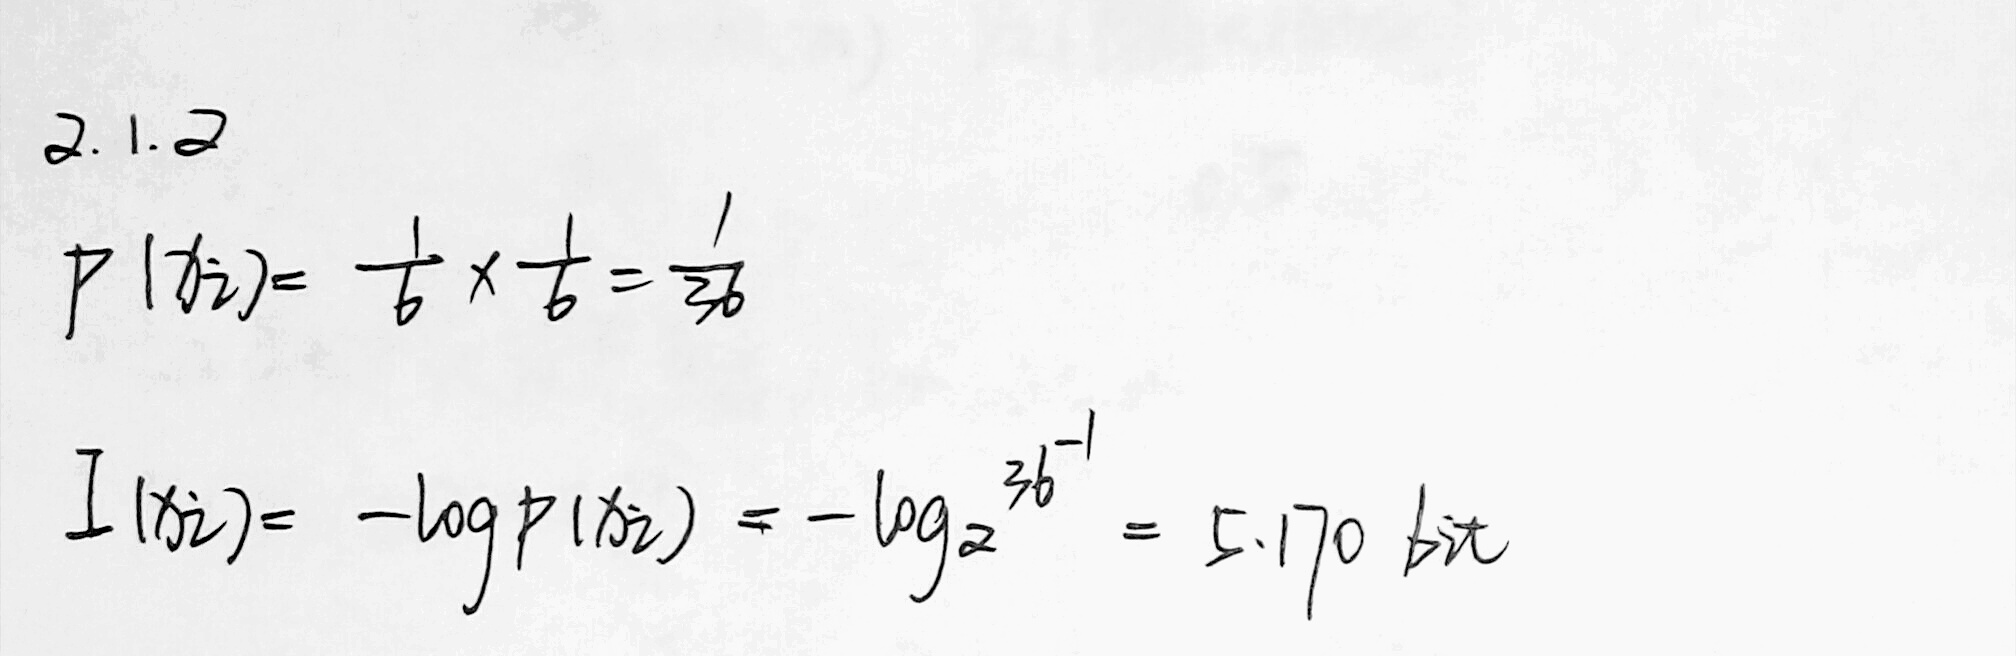 2.1.2
P(xi) = 1/6 × 1/6 = 1/36
I(xi) = -log P(xi) = -log₂ 36⁻¹ = 5.170 bit